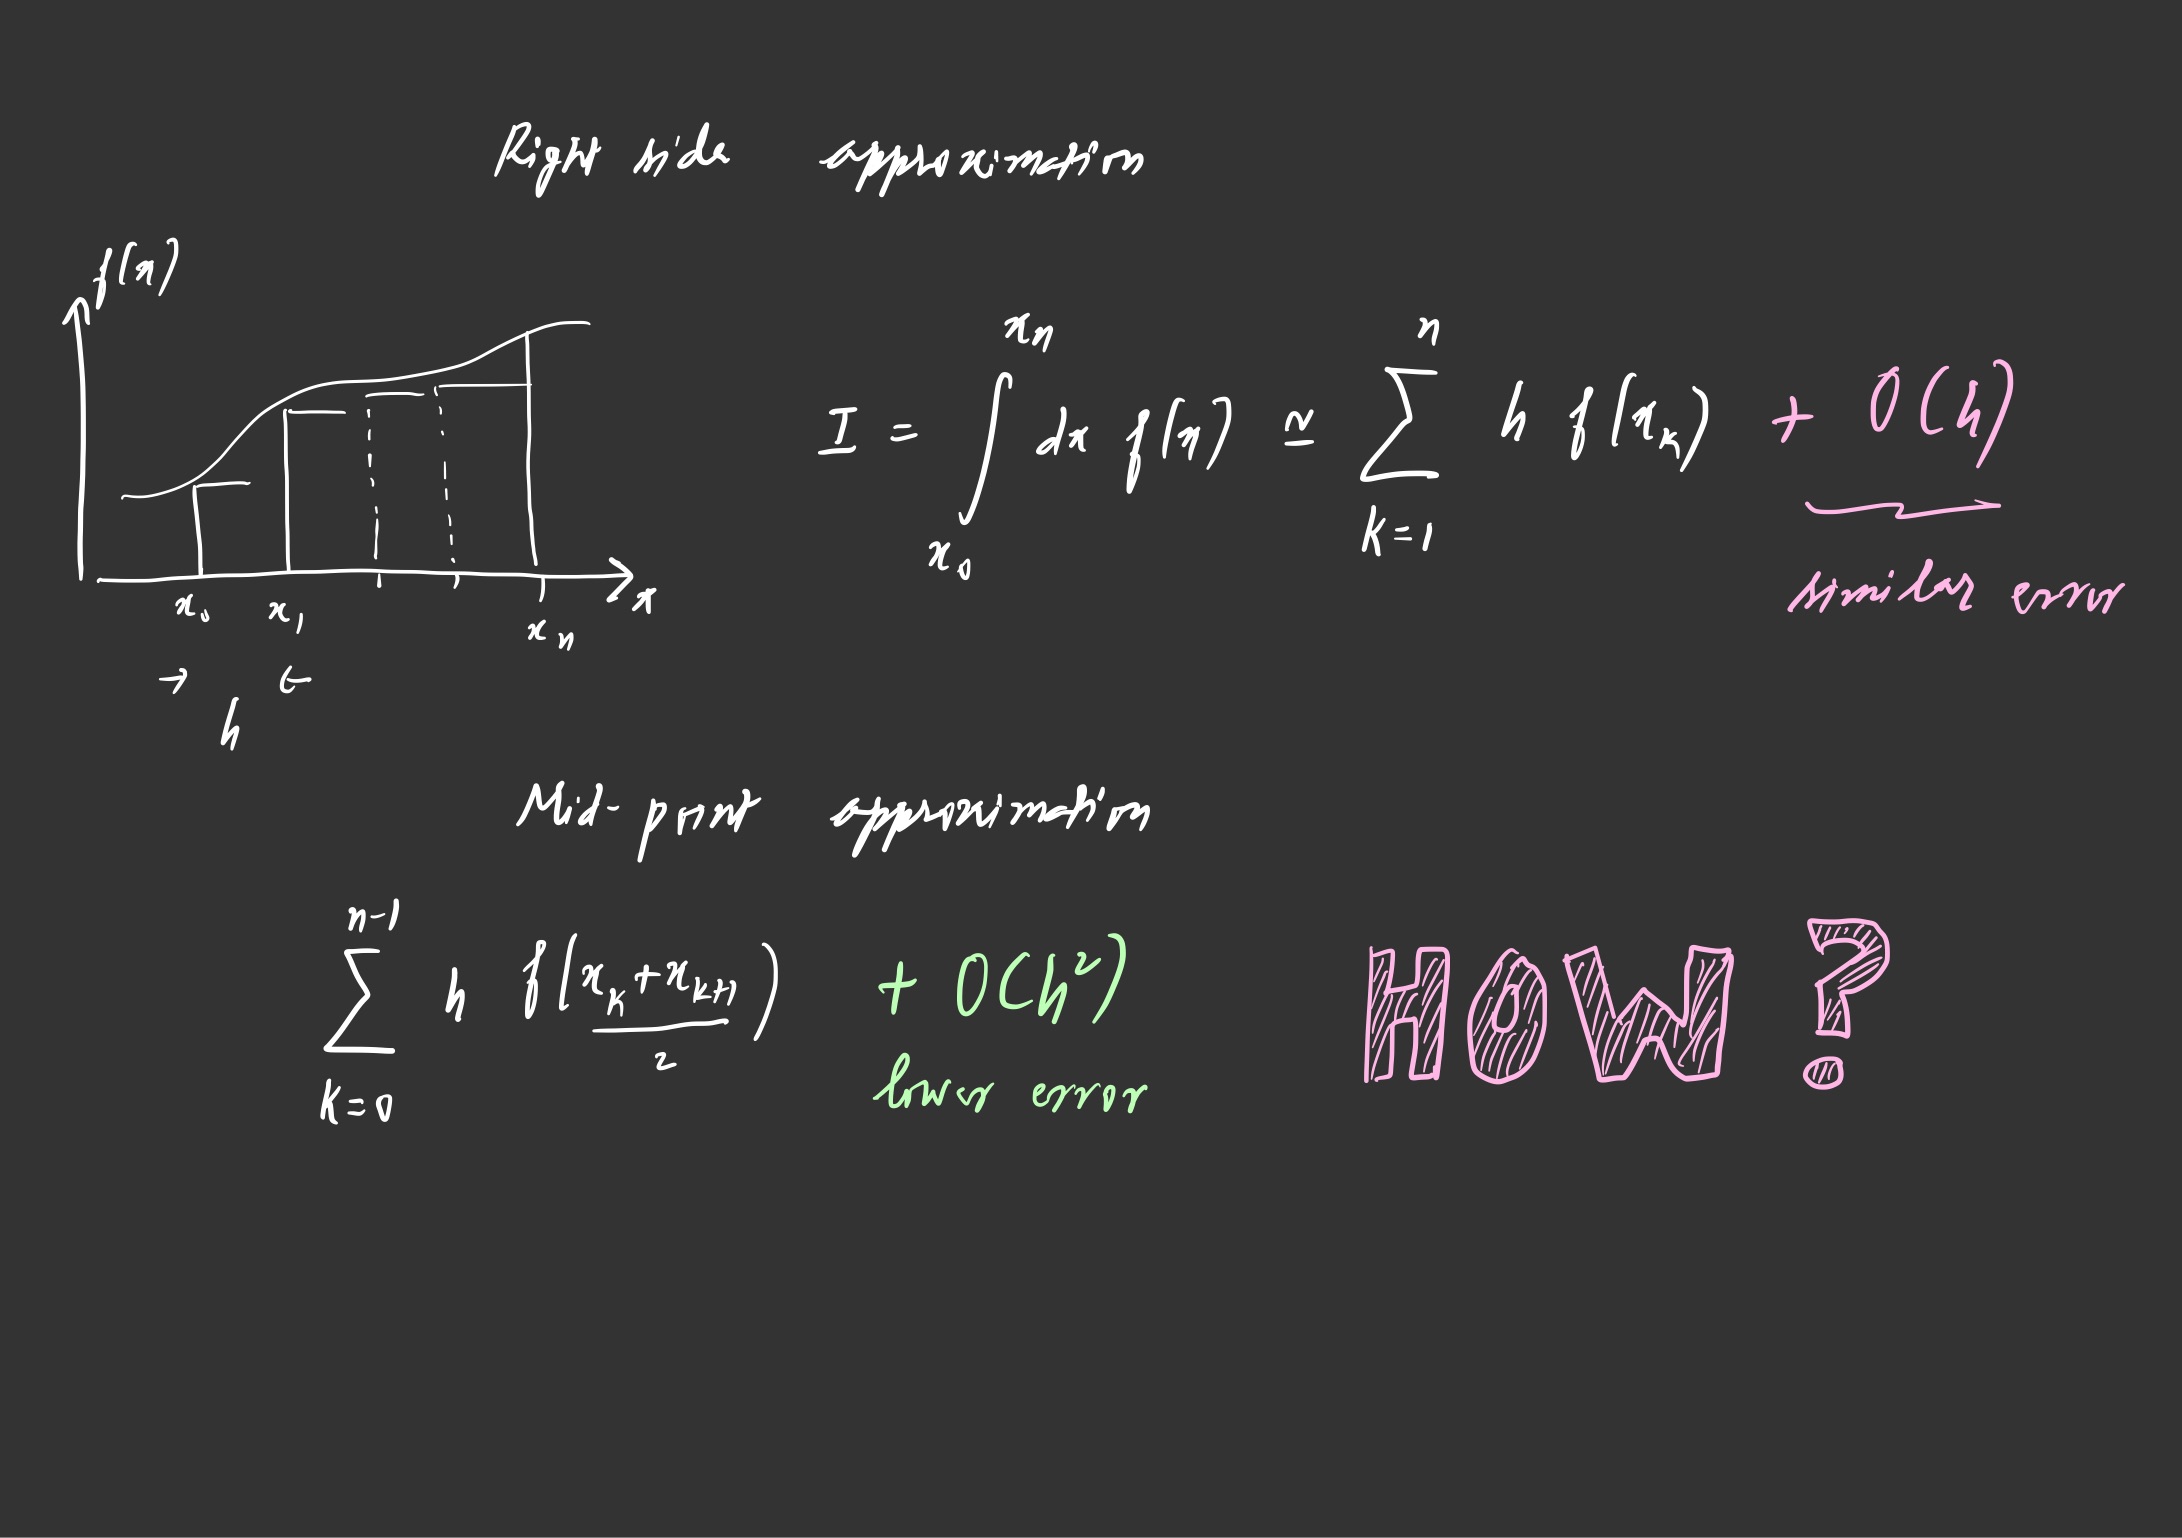 Right side approximation
f(x)
I = ∫_{x_0}^{x_n} dx f(x) ≃ ∑_{k=1}^{n} h f(x_k) + O(h)
similar error
x_0 x_1 x_n x
→ h ←
Mid-point approximation
∑_{k=0}^{n-1} h f((x_k + x_{k+1})/2) + O(h²)
lower error
HOW?